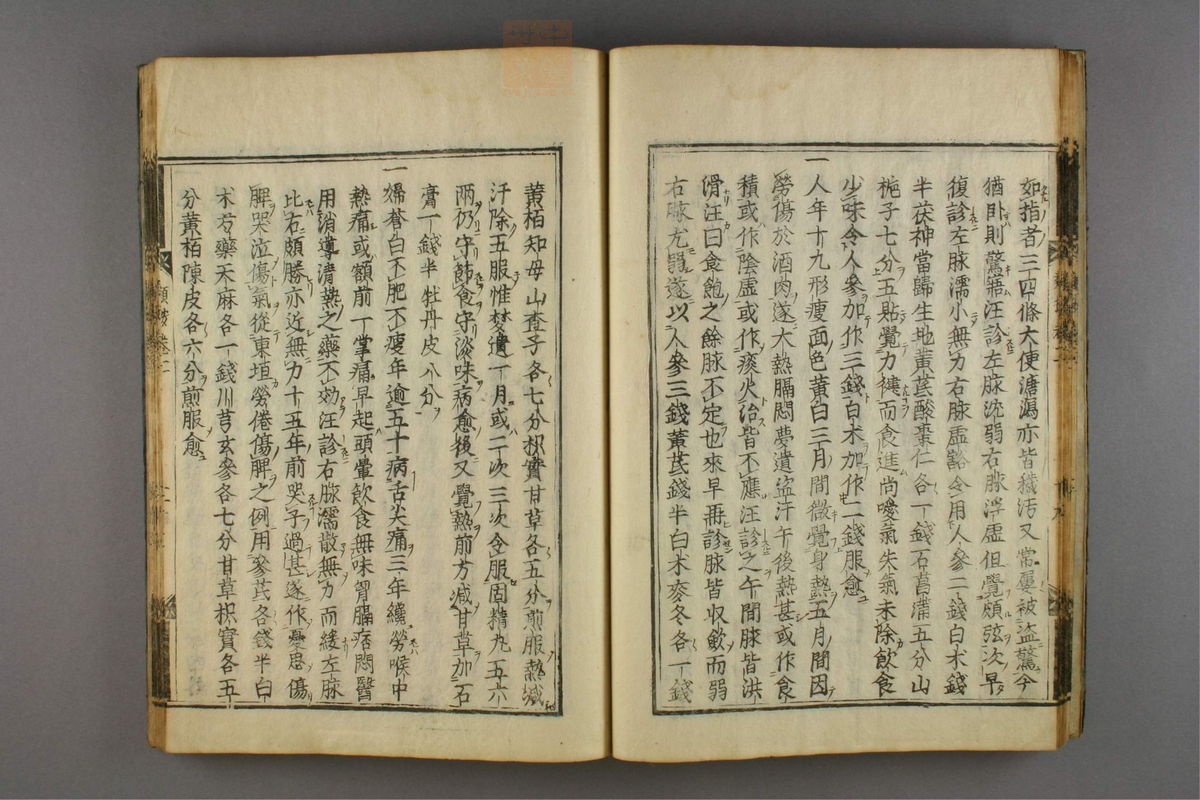 如指者三四條大便溏瀉亦皆穢汚又常屢被盜驚今
猶卧則驚寤汪診左脉沈弱右脉浮虛但覺頗弦次早
復診左脉濡小無力右脉虛豁令用人參二錢白木錢
半茯神當歸生地黃芪酸棗仁各一錢石菖蒲五分山
梔子七分五貼覺力健而食進尚噯氣失氣未除飲食
少味令人參加作三錢白木加作二錢服愈
一人年十九形瘦面色黃白三月間微覺身熱五月間因
勞傷於酒肉遂大熱膈悶夢遺盜汗午後熱甚或作食
積或作陰虛或作痰火治皆不應汪診之午間脉皆洪
滑汪曰食飽之餘脉不定也來早再診脉皆收斂而弱
右脉尤弱遂以人參三錢黃芪錢半白木麥冬各一錢
黃栢知母山查子各七分枳實甘草各五分煎服熱减
汗除五服惟夢遺一月或二次三次令服固精丸五六
兩仍守節食守淡味病愈後又覺熱前方减甘草加石
膏一錢半牡丹皮八分
一婦蒼白不肥不瘦年逾五十病舌尖痛三年纔勞喉中
熱痛或額前一掌痛早起頭暈飲食無味胷膈痞悶醫
用消導淸熱之藥不効汪診右脉濡散無力而緩左脉
比右頗勝亦近無力十五年前哭子過甚遂作憂思傷
脾哭泣傷氣從東垣勞倦傷脾之例用參芪各錢半白
木芍藥天麻各一錢川芎玄參各七分甘草枳實各五
分黃栢陳皮各六分煎服愈